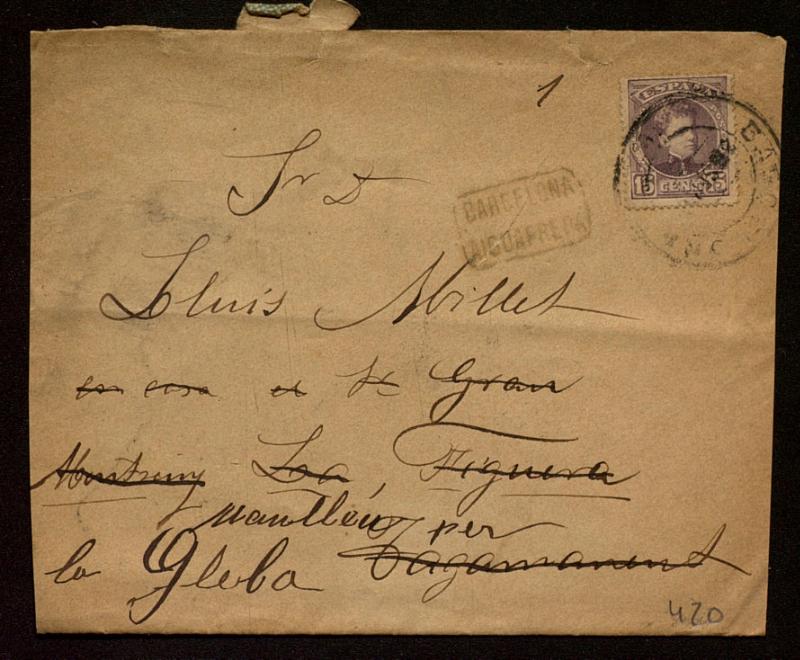 1
ESPAÑA
15 CENS 15
BARCELONA
AIGUAFREDA
Sr D
Lluís Millet
en casa el Sr Gran
Montseny La Figuera
Manlleu per
la Gleba Tagamanent
420